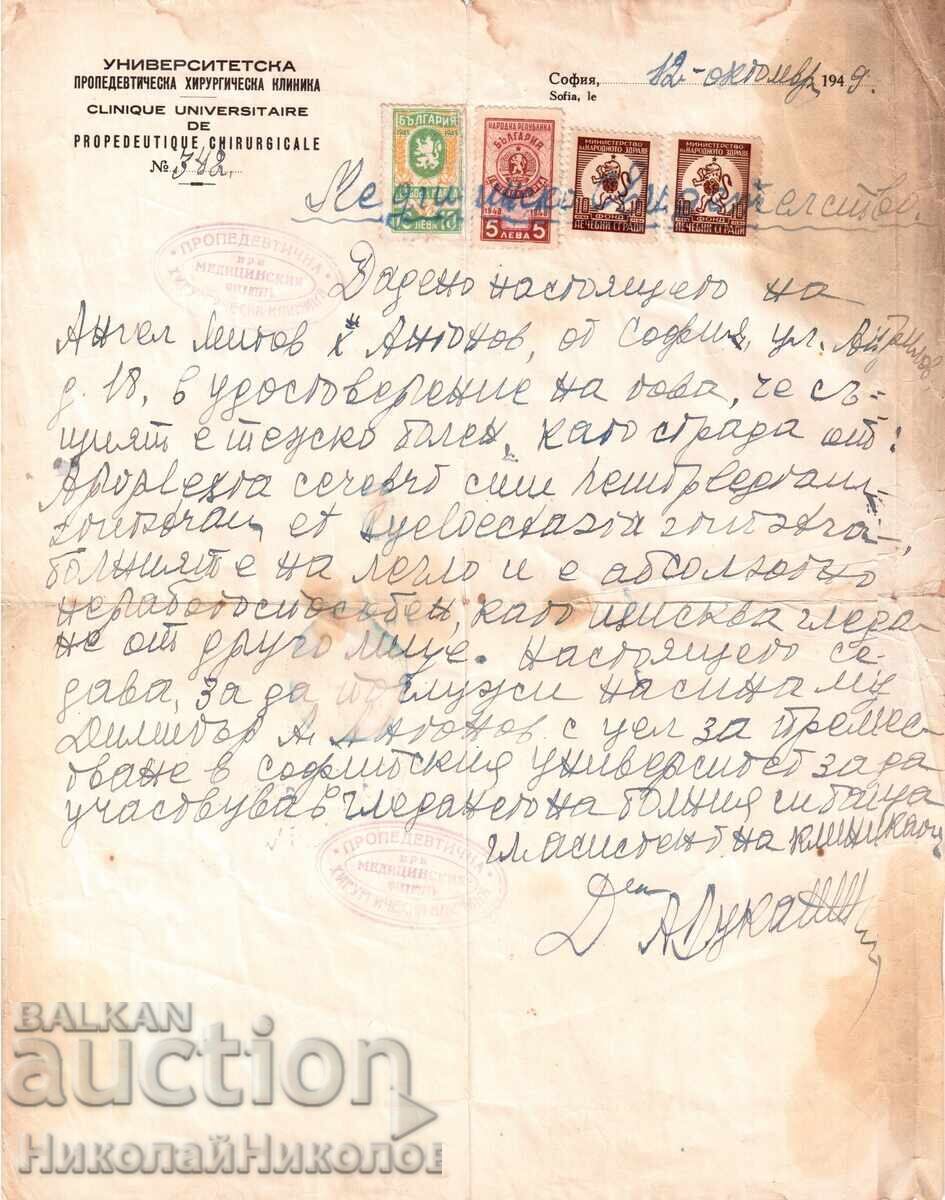 УНИВЕРСИТЕТСКА
ПРОПЕДЕВТИЧЕСКА ХИРУРГИЧЕСКА КЛИНИКА
CLINIQUE UNIVERSITAIRE
DE
PROPEDEUTIQUE CHIRURGICALE
№ 342.
София, 12-октомвр 1949.
Sofia, le
БЪЛГАРИЯ
1945 1945
ЛЕВА
НАРОДНА РЕПУБЛИКА
БЪЛГАРИЯ
1948 1948
5 ЛЕВА 5
МИНИСТЕРСТВО
НА НАРОДНОТО ЗДРАВЕ
ФОНД
ЛЕЧЕБНИ СГРАДИ
МИНИСТЕРСТВО
НА НАРОДНОТО ЗДРАВЕ
ФОНД
ЛЕЧЕБНИ СГРАДИ
Медицинско
ПРОПЕДЕВТИЧНА
при
МЕДИЦИНСКИЯ
ХИРУРГИЧЕСКА КЛИНИКА
Дадено настоящето на
Ангел Митов Х Антонов, от София, ул.
д. 18, в удостоверение на това, че съ-
щият е тежко болен, като страда от:
et
болният е на легло и е абсолютно
неработоспособен, като изисква гледа-
не от друго лице. Настоящето се
дава, за да послужи на сина му
Димитър А. Антонов с цел за премес-
тване в Софийския университет за да
участвува в гледането на болния си баща
гл. асистент на клиниката:
ПРОПЕДЕВТИЧНА
при
МЕДИЦИНСКИЯ
ХИРУРГИЧЕСКА КЛИНИКА
Д-р А.
BALKAN
auction
НиколайНиколов